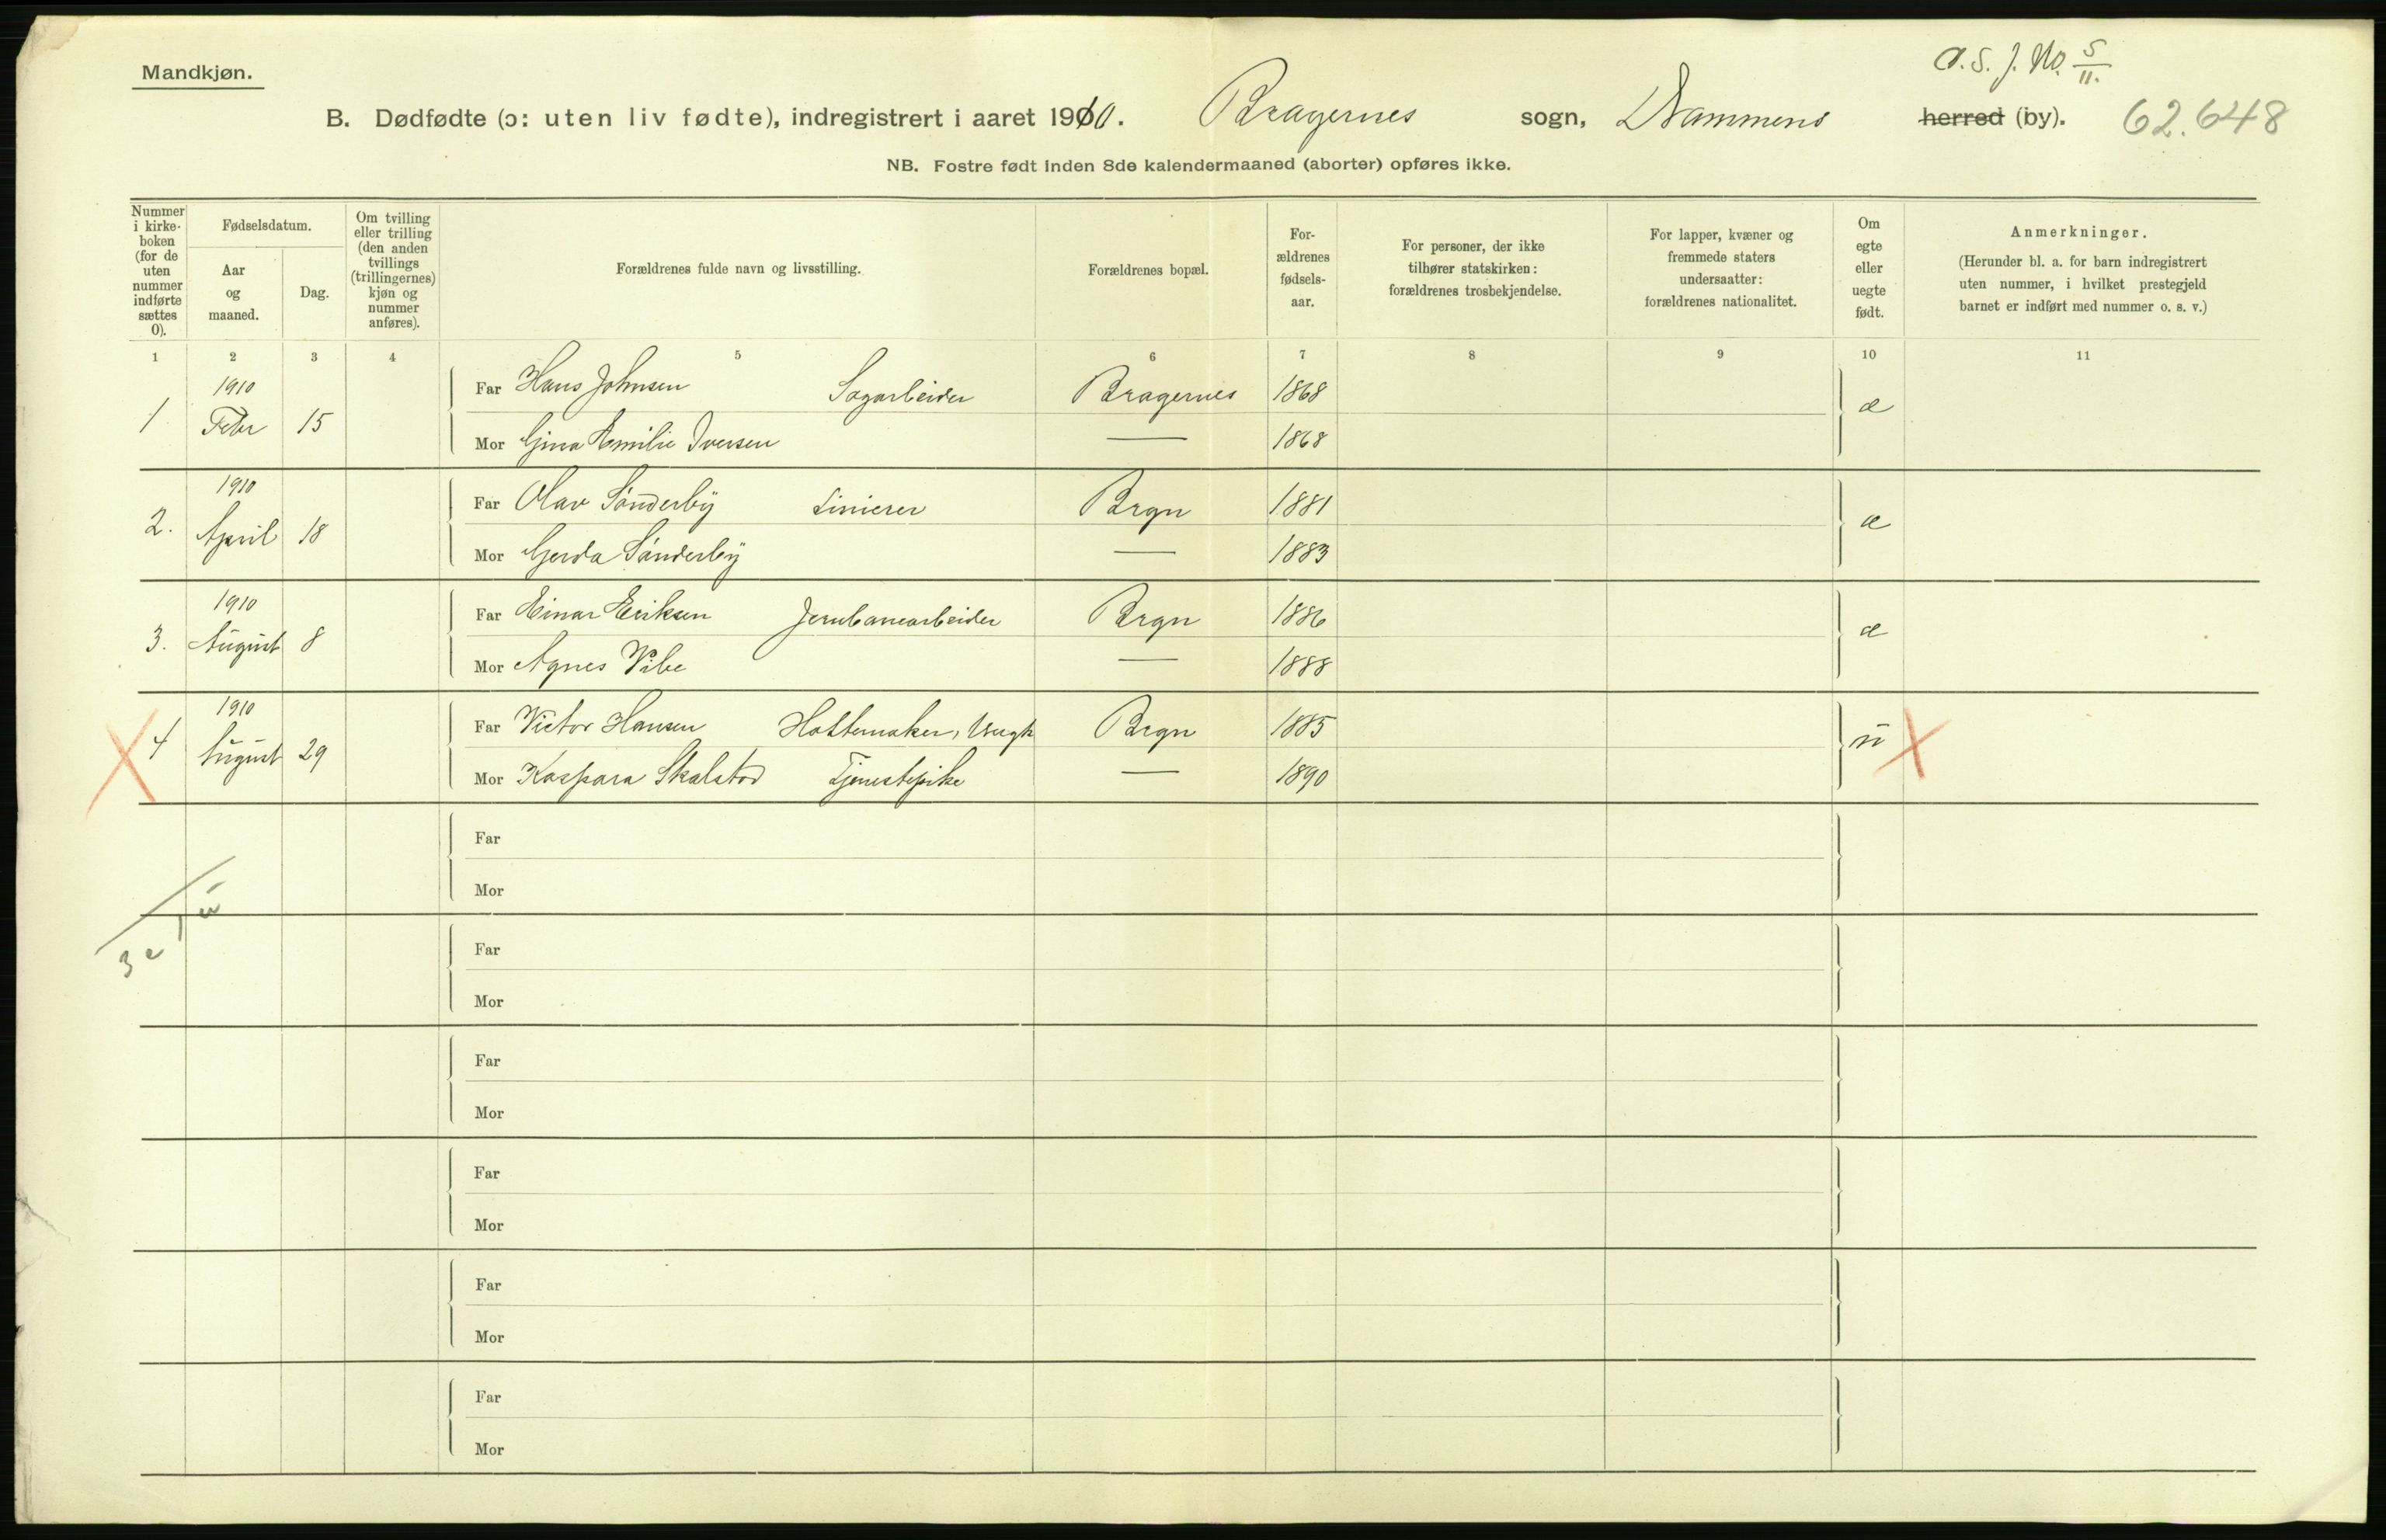 Mandkjøn.
O. S. J. No. 5/11.
B. Dødfødte (ɔ: uten liv fødte), indregistrert i aaret 1910. Bragernes sogn, Drammens herred (by). 62.648
NB. Fostre født inden 8de kalendermaaned (aborter) opføres ikke.
Nummer i kirke-boken (for de uten nummer indførte sættes 0).
Fødselsdatum.
Aar og maaned.
Dag.
Om tvilling eller trilling (den anden tvillings (trillingernes) kjøn og nummer anføres).
Forældrenes fulde navn og livsstilling.
Forældrenes bopæl.
For-ældrenes fødsels-aar.
For personer, der ikke tilhører statskirken: forældrenes trosbekjendelse.
For lapper, kvæner og fremmede staters undersaatter: forældrenes nationalitet.
Om egte eller uegte født.
Anmerkninger.
(Herunder bl. a. for barn indregistrert uten nummer, i hvilket prestegjeld barnet er indført med nummer o. s. v.)
1 2 3 4 5 6 7 8 9 10 11
1 1910 Febr 15 Far Hans Johnsen Sagarbeider Bragernes 1868 æ
Mor Gina Emilie Iversen — 1868
2. 1910 April 18 Far Olav Sønderby Linierer Brgn 1881 æ
Mor Gerda Sønderby — 1883
3. 1910 August 8 Far Einar Eriksen Jernbanearbeider Brgn 1886 æ
Mor Agnes Vibe — 1888
4 1910 August 29 Far Victor Hansen Hattemaker, Ungk Brgn 1885 u
Mor Kaspara Skalstad Tjenestepike — 1890
Far
Mor
3 e 1 u
Far
Mor
Far
Mor
Far
Mor
Far
Mor
Far
Mor